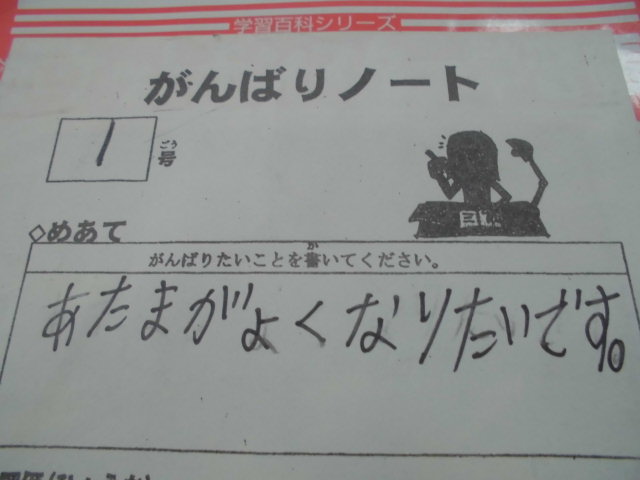 学習百科シリーズ
がんばりノート
1
ごう
号
◇めあて
か
がんばりたいことを書いてください。
あたまがよくなりたいです。